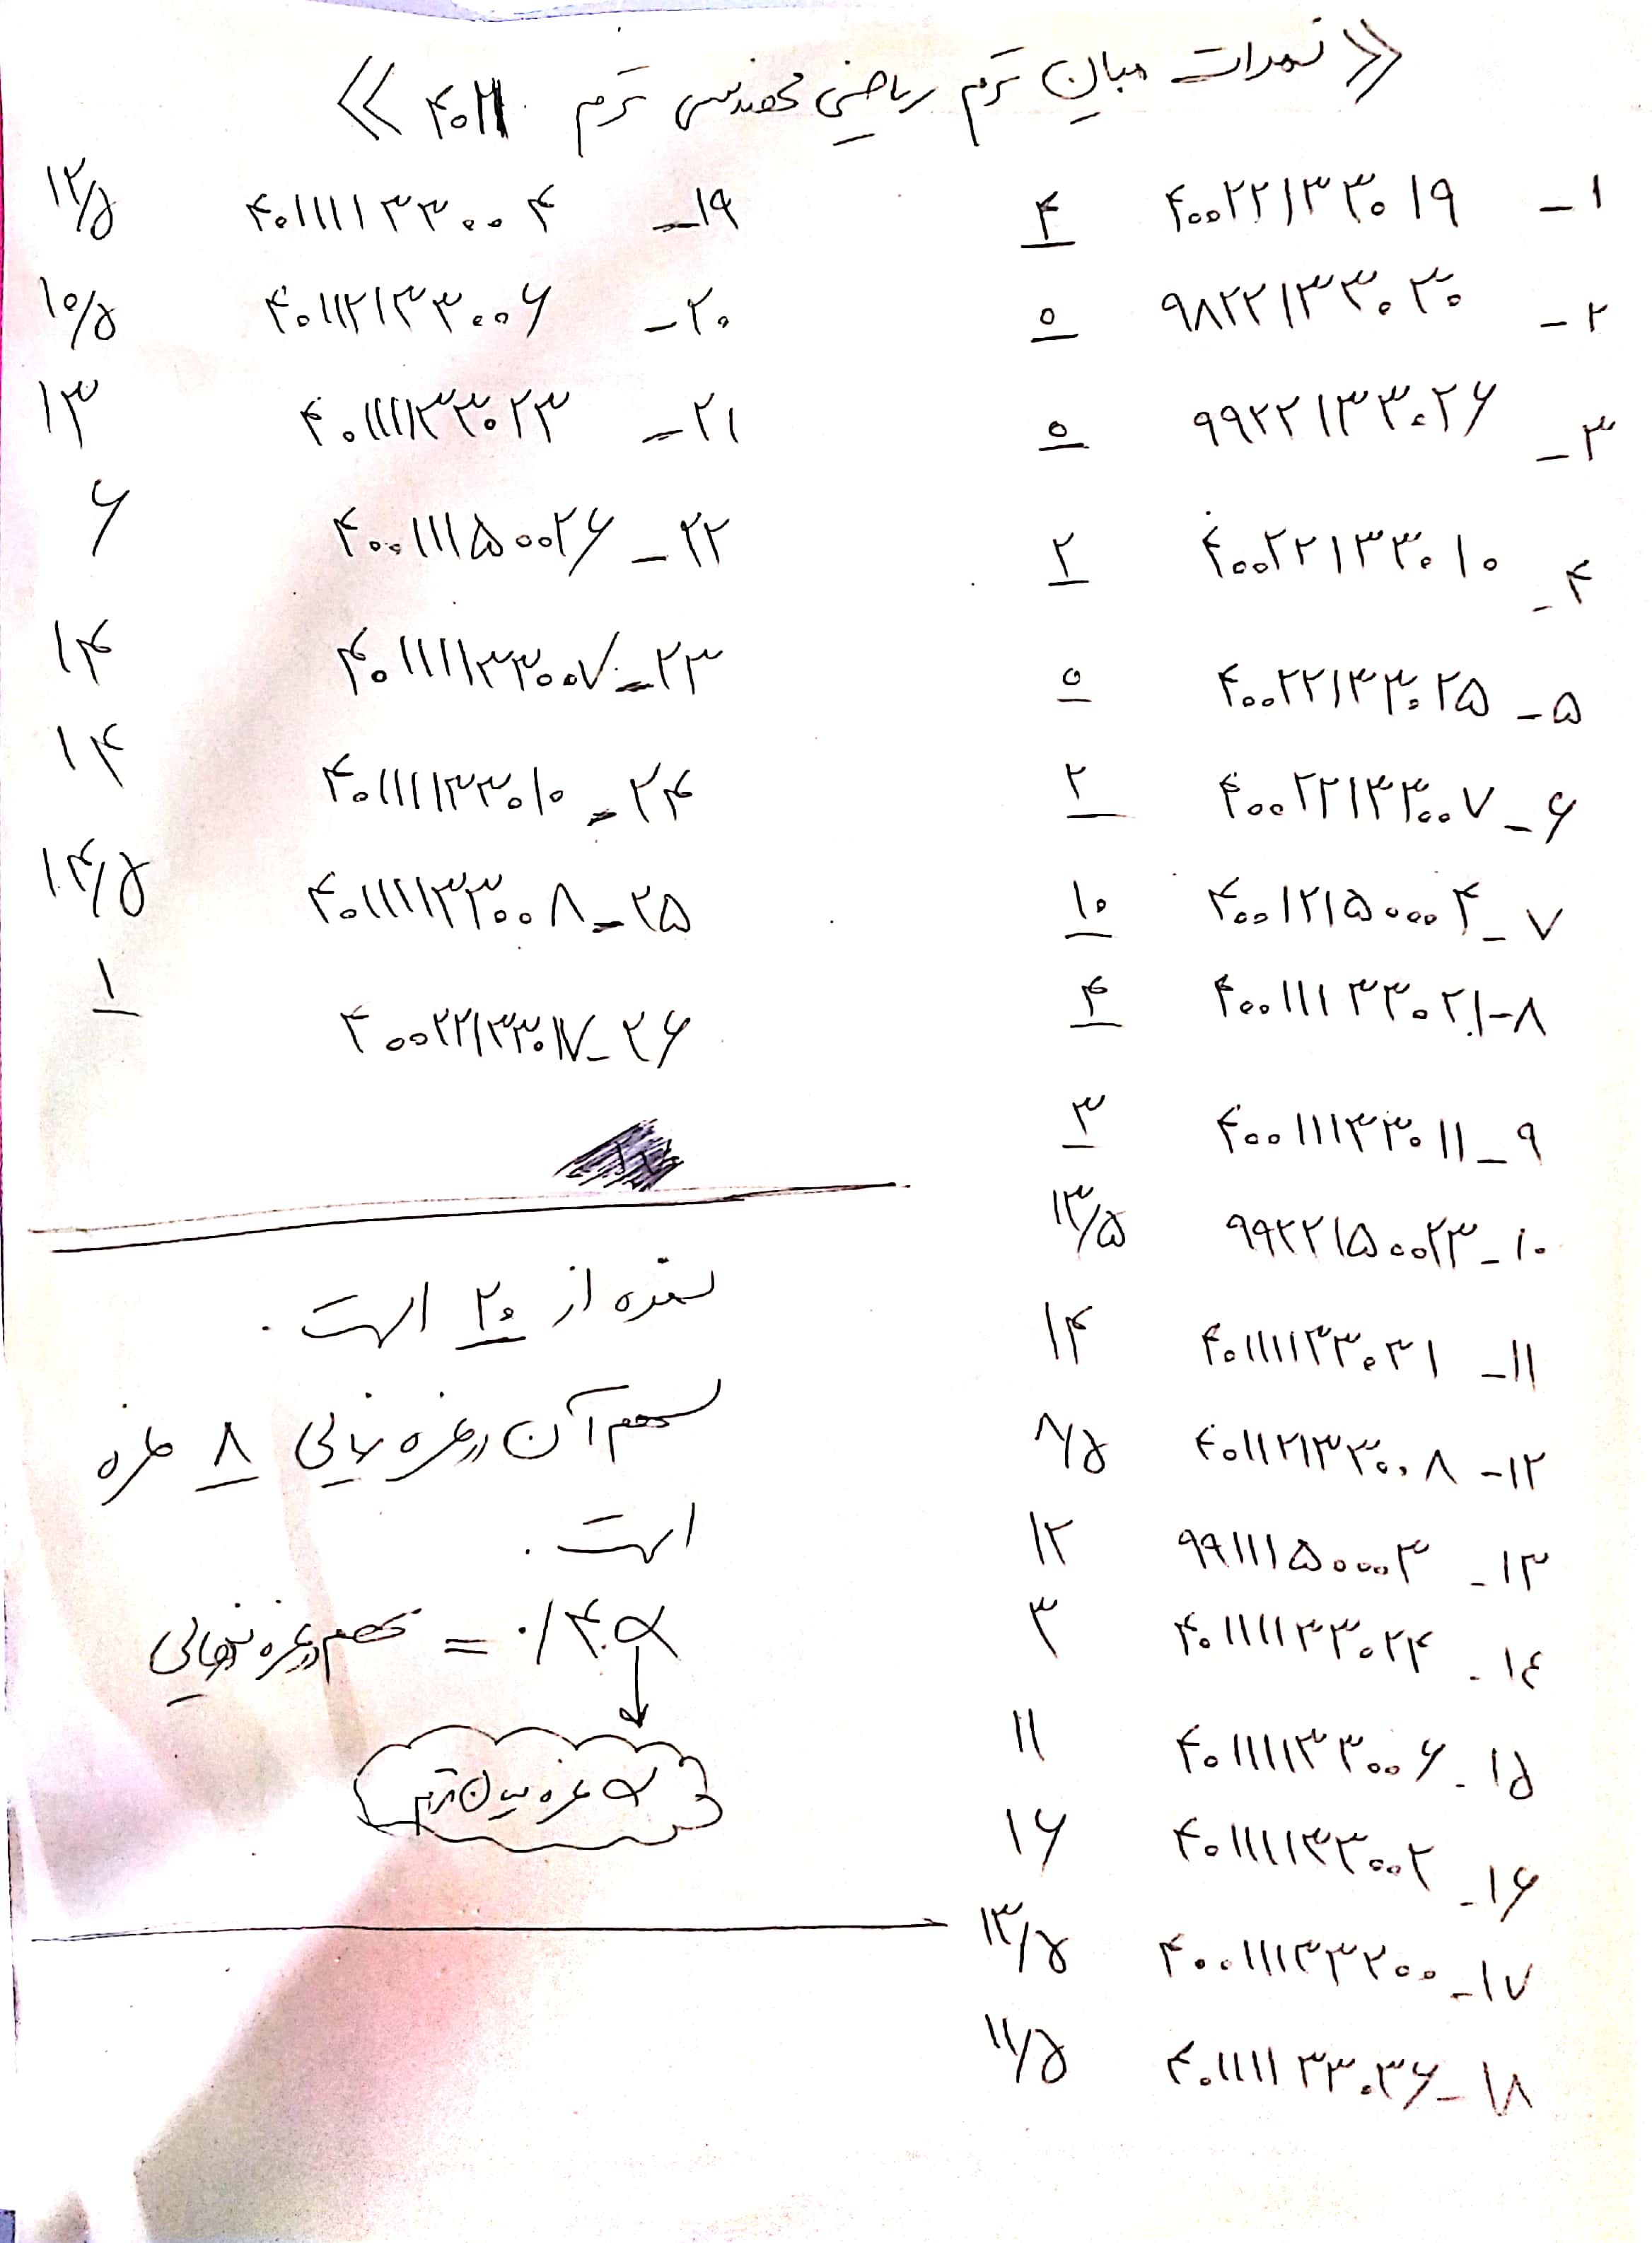 << نمرات میان ترم ریاضی مهندسی ترم ۴۰۲۱ >>
۱- ۴۰۰۲۲۱۳۳۰۱۹ ۴
۲- ۹۸۲۲۱۳۳۰۳۰ ۰
۳- ۹۹۲۲۱۳۳۰۲۶ ۰
۴- ۴۰۰۲۲۱۳۳۰۱۰ ۲
۵- ۴۰۰۲۲۱۳۳۰۲۵ ۰
۶- ۴۰۰۲۲۱۳۳۰۰۷ ۲
۷- ۴۰۰۱۲۱۵۰۰۰۴ ۱۰
۸- ۴۰۰۱۱۱۳۳۰۲۱ ۴
۹- ۴۰۰۱۱۱۳۳۰۱۱ ۳
۱۰- ۹۹۲۲۱۵۰۰۲۳ ۱۳/۵
۱۱- ۴۰۱۱۱۱۳۳۰۳۱ ۱۴
۱۲- ۴۰۱۱۲۱۳۳۰۰۸ ۸/۵
۱۳- ۹۹۱۱۱۵۰۰۰۳ ۱۲
۱۴- ۴۰۱۱۱۱۳۳۰۲۴ ۳
۱۵- ۴۰۱۱۱۱۳۳۰۰۶ ۱۱
۱۶- ۴۰۱۱۱۱۳۳۰۰۲ ۱۶
۱۷- ۴۰۰۱۱۱۳۳۲۰۰ ۱۳/۵
۱۸- ۴۰۱۱۱۱۳۳۰۳۶ ۱۱/۵
۱۹- ۴۰۱۱۱۱۳۳۰۰۴ ۱۲/۵
۲۰- ۴۰۱۱۲۱۳۳۰۰۶ ۱۰/۵
۲۱- ۴۰۱۱۱۱۳۳۰۲۳ ۱۳
۲۲- ۴۰۰۱۱۱۵۰۰۲۶ ۶
۲۳- ۴۰۱۱۱۱۳۳۰۰۷ ۱۴
۲۴- ۴۰۱۱۱۱۳۳۰۱۰ ۱۴
۲۵- ۴۰۱۱۱۱۳۳۰۰۸ ۱۴/۵
۲۶- ۴۰۰۲۲۱۳۳۰۱۷ ۱
نمره از ۲۰ است .
سهم آن در نمره نهایی ۸ نمره
است .
سهم در نمره نهایی = ۰/۴ α
α نمره میان ترم